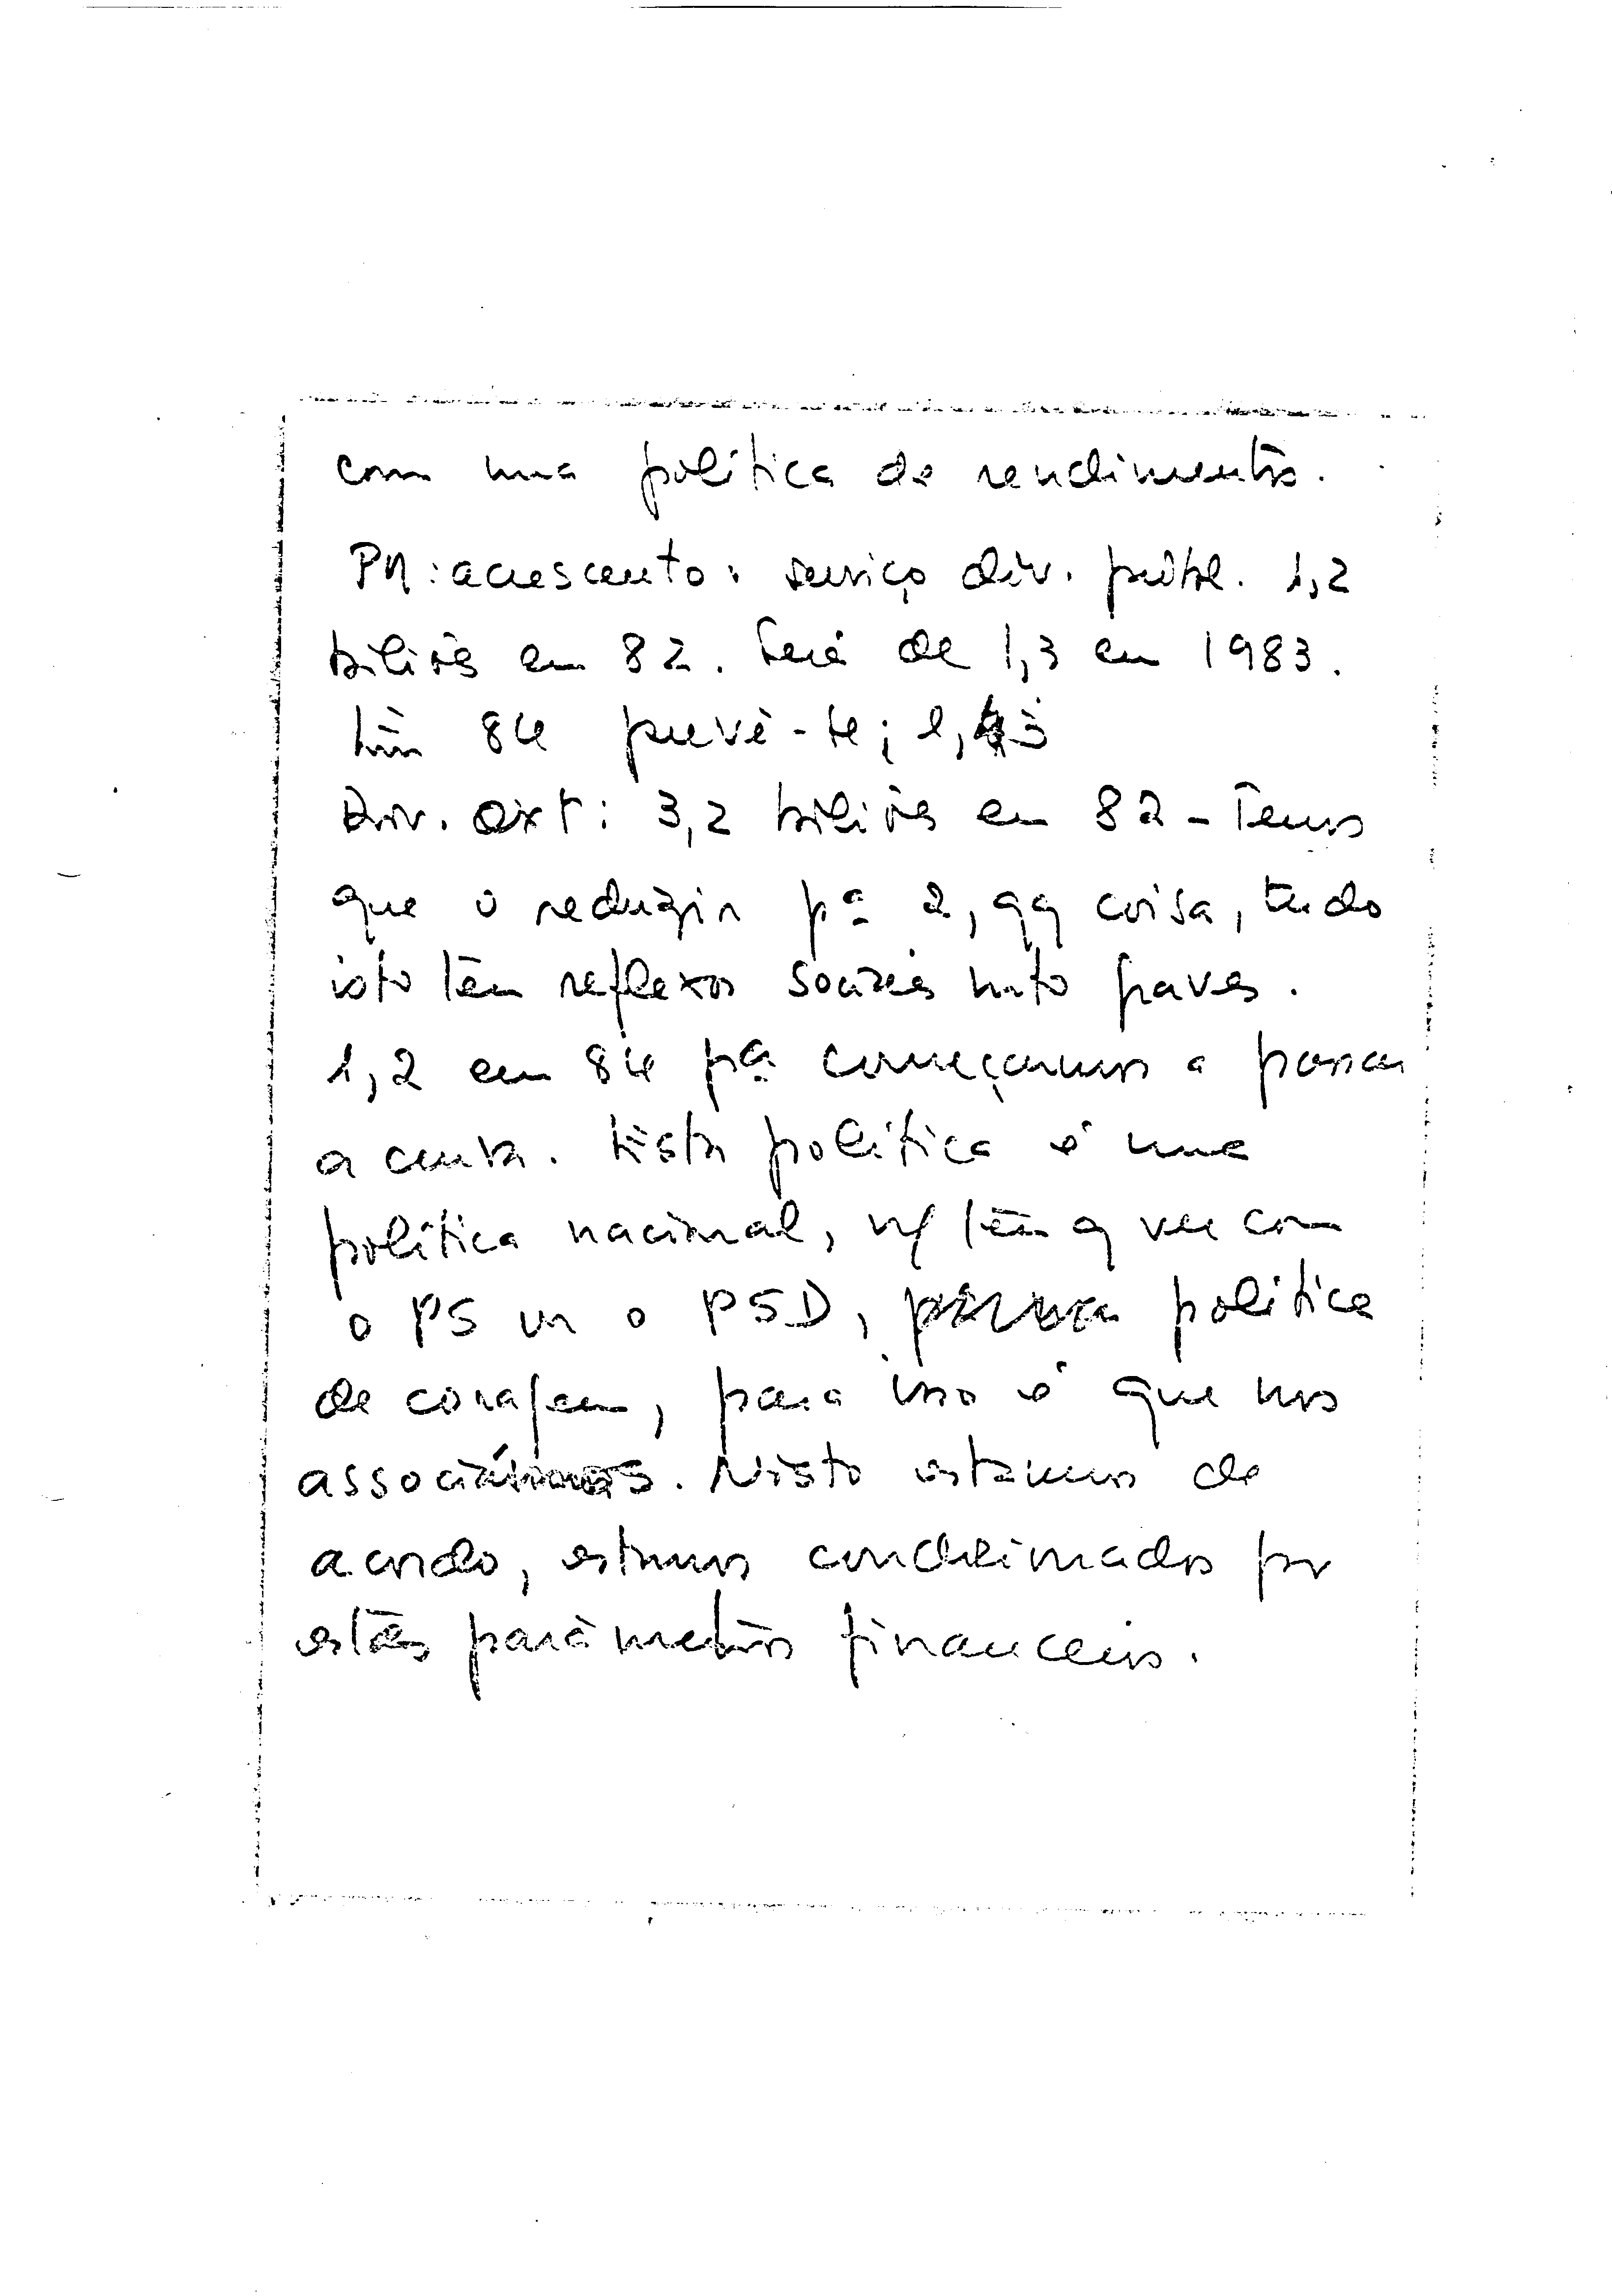 com uma política de rendimentos.
PM: acrescento: serviço div. públ. 1,2
biliões em 82. Será de 1,3 em 1983.
Em 84 prevê-se;
Div. ext: 3,2 biliões em 82 - Temos
que o reduzir pª 2, qq coisa, tudo
isto tem reflexos sociais mto graves.
1,2 em 84 pª começarmos a passar
a curva. Esta política é uma
política nacional, ñ tem q ver com
o PS ou o PSD, política
de coragem, para isso é que nos
associámos. Nisto estamos de
acordo, estamos condicionados por
estes parâmetros financeiros.